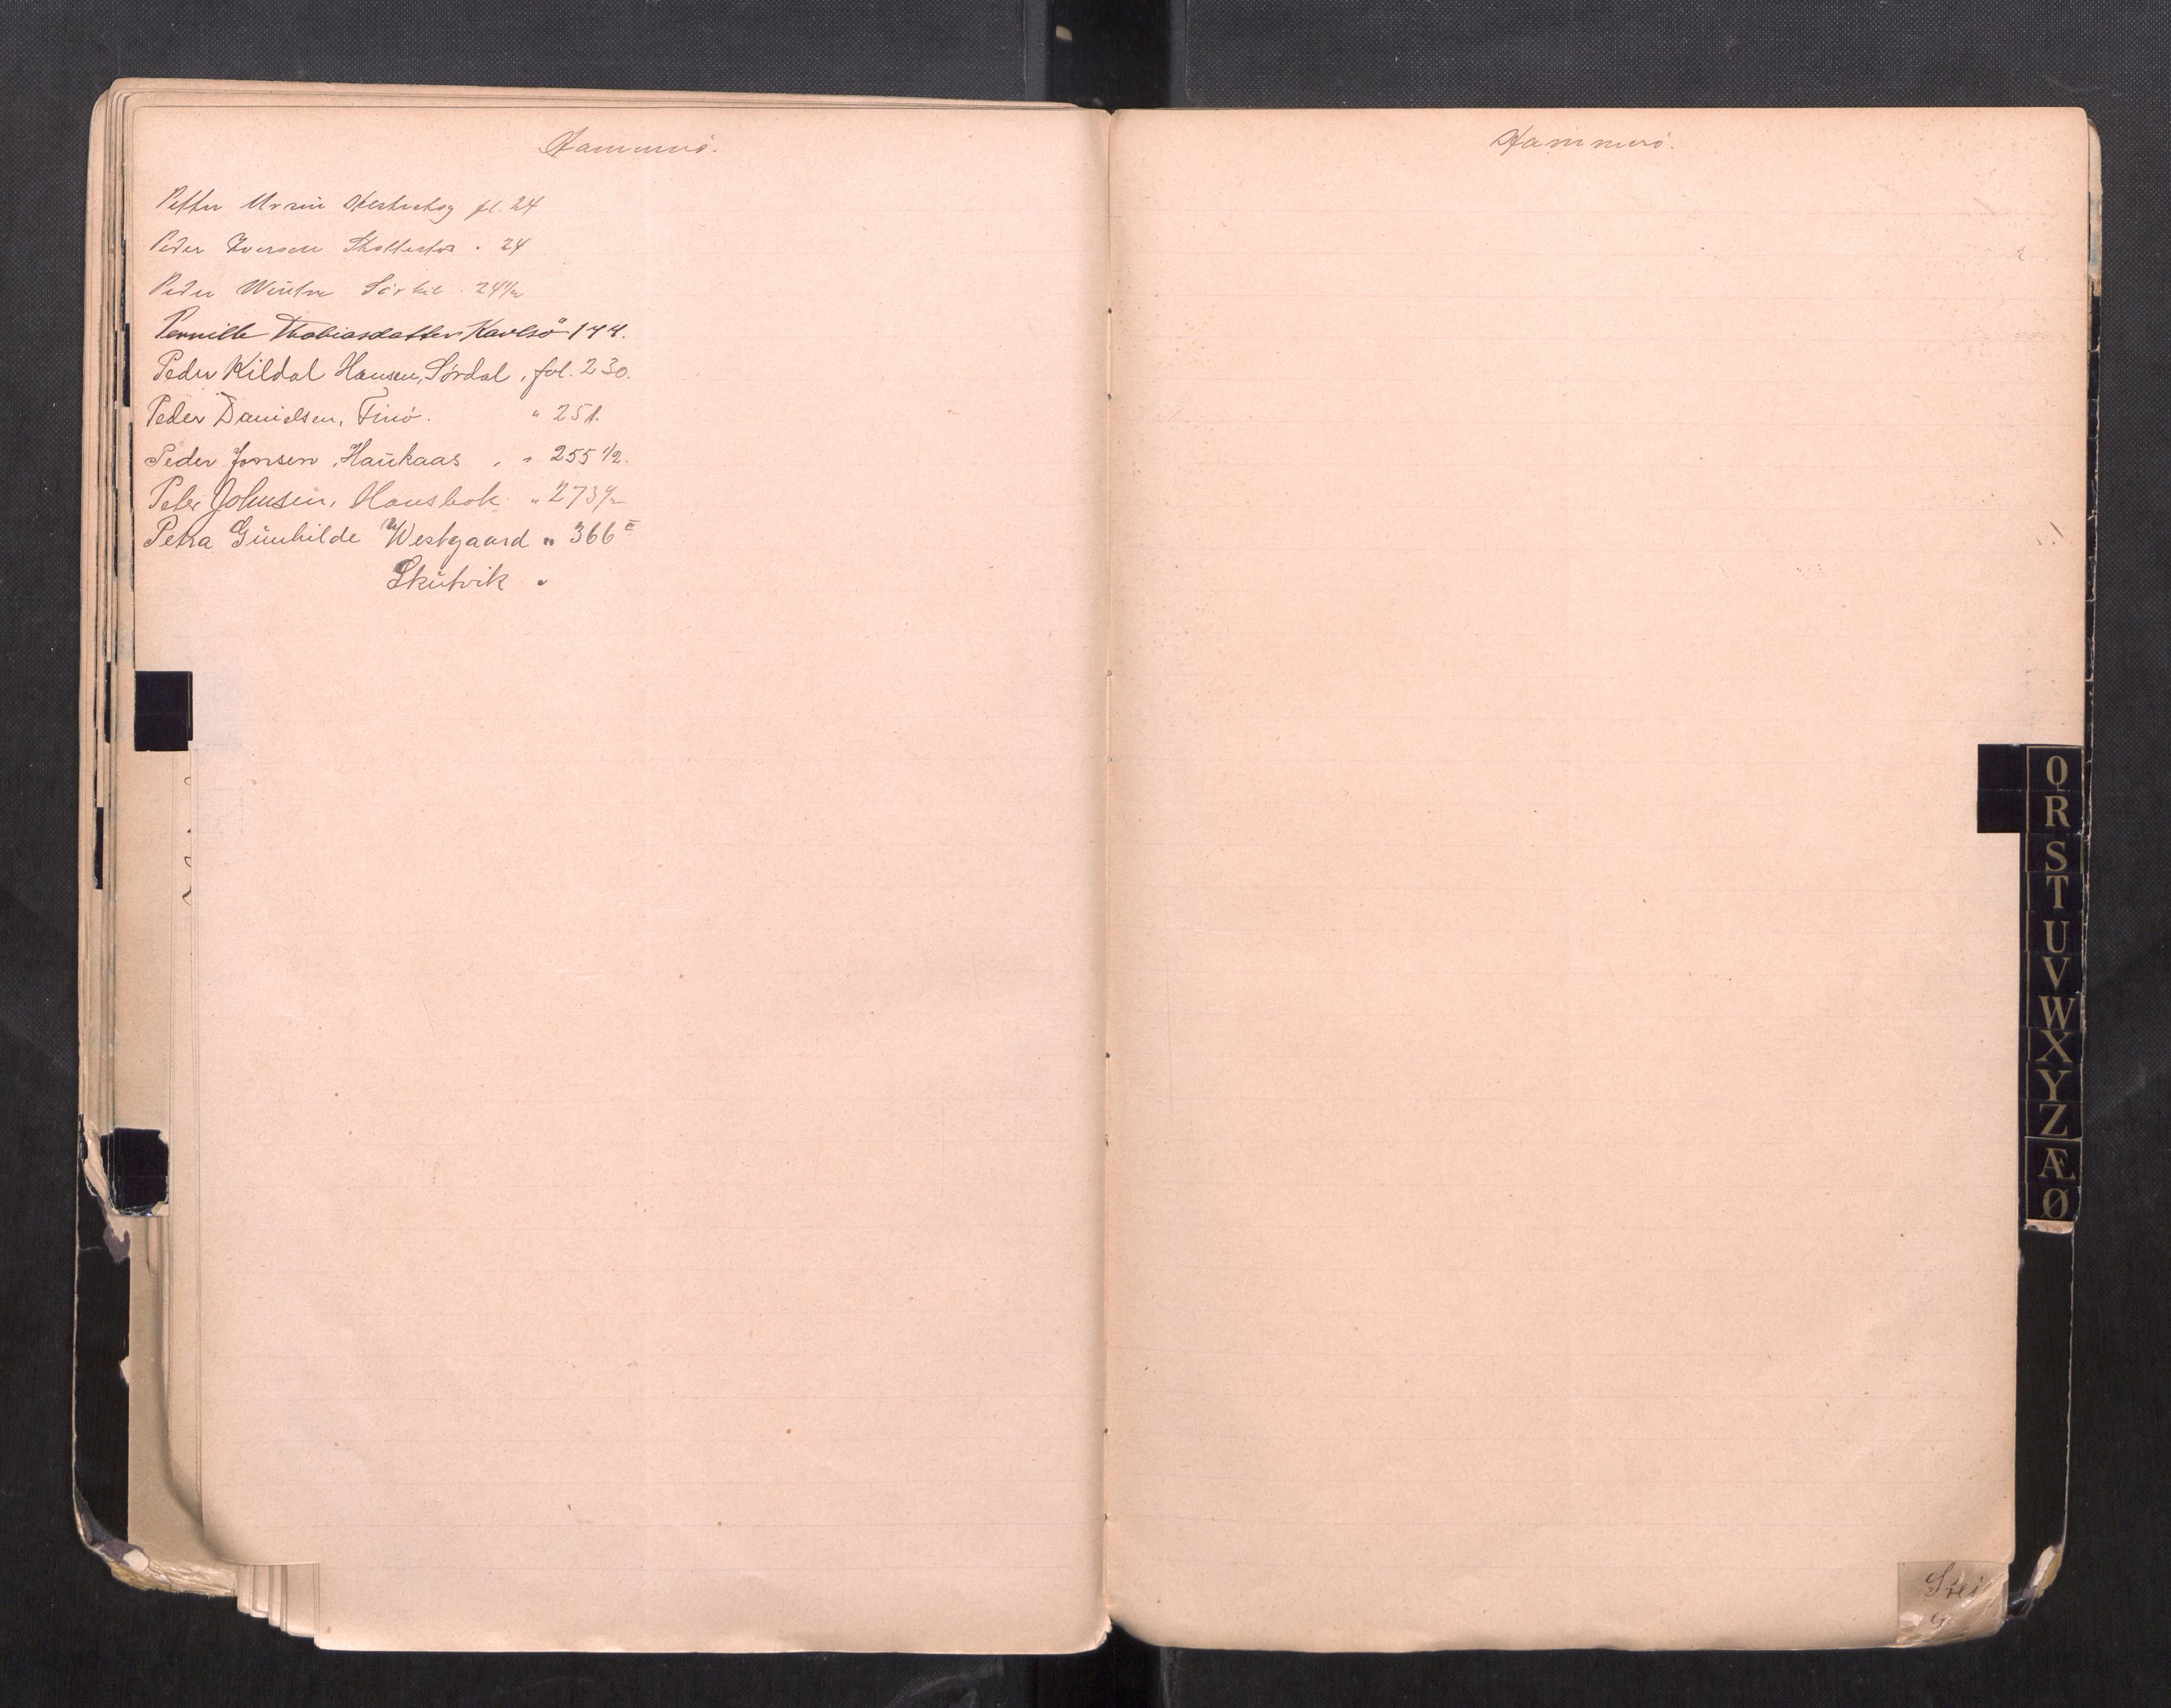 Hammerö.
Petter Ursin fl. 24
Peder Iversen " 24
Peder Winther " 24 1/2
Pernille Thobiasdatter Karlsö 144.
Peder Kildal Hansen, Sørdal, fol. 230.
Peder Danielsen, Finö. " 251.
Peder Jonsen, Haukaas, " 255 1/2.
Peter Johnsen, Hansbak " 273 1/2
Petra Gunhilde Westgaard " 366
Skutvik "
Hammerö.
Q
R
S
T
U
V
W
X
Y
Z
Æ
Ø